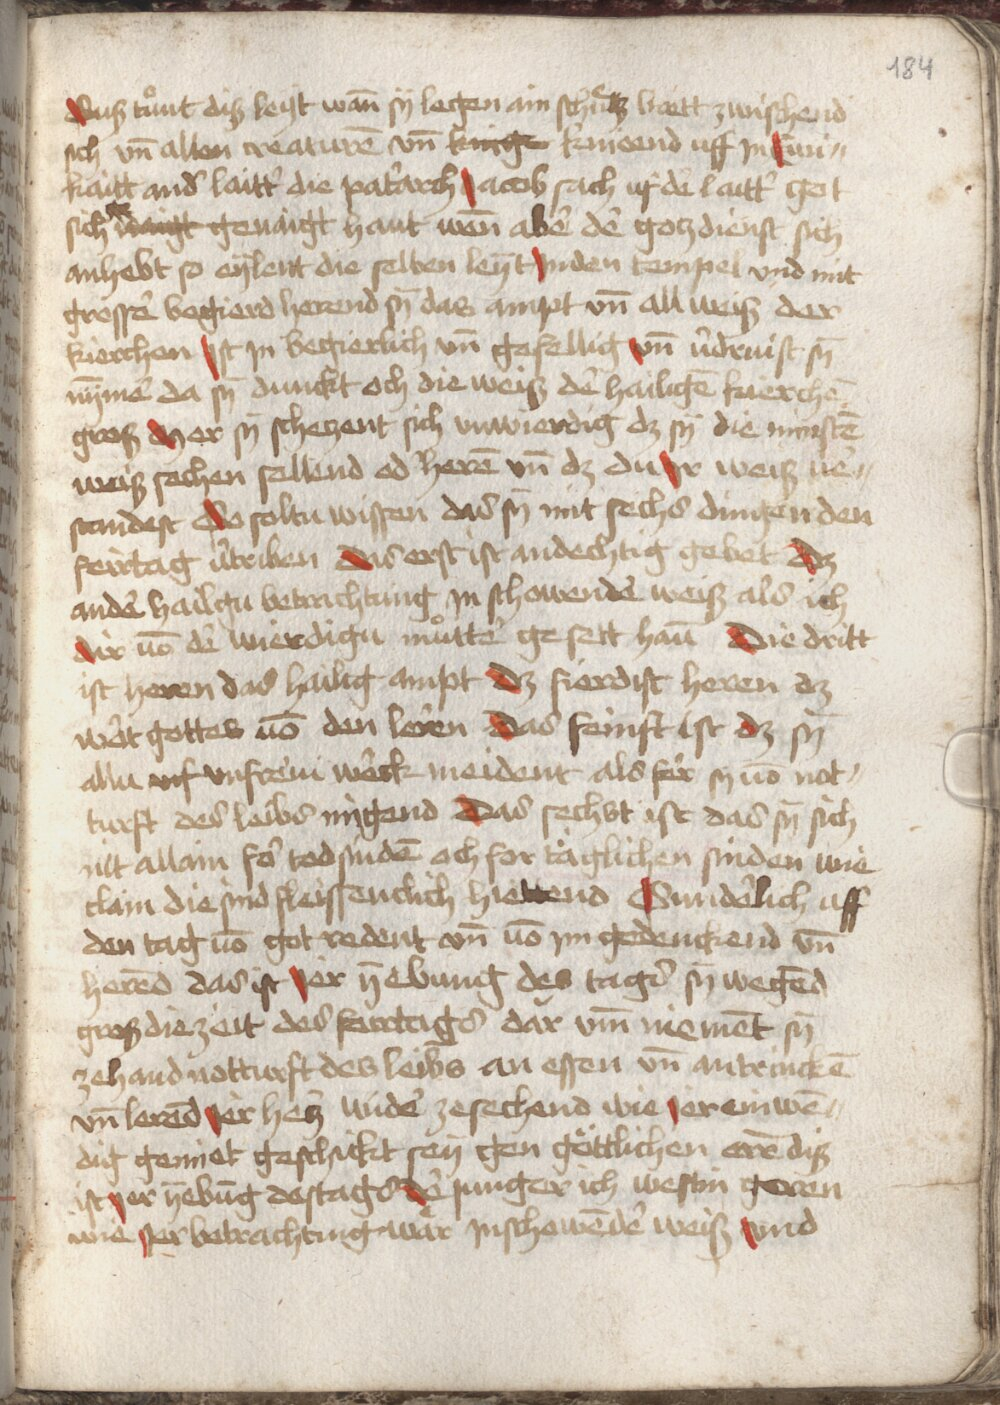 184
Diß tuͦnt diß leyt wañ sÿ legen ain schuͤtz brett zwischend
sich vñ allen creaturē vñ kniend uff in Inni-
kaitt and laitt die patarch Jacob sach uf dē laitt got
sich genaigt haut wēn abē dē gotzdienst sich
anhebt so eylent die selben leyt Inden tempel vnd mit
grossē begierd herend sÿ das ampt vñ all weiß der
kierchen Ist In begierlich vñ gefellig vñ ūdruist sÿ
nÿmē da sÿ dunckt och die weiß dē hailigē kierchē
groß Mer sÿ schetzent sich vnwierdig dz sÿ die minstē
weiß sechen sellend od herē vñ dz du Ir weiß ūe-
standest So soltu wissen das sÿ mit sechs dingen den
feirtag ūtriben Das erst ist andechtig gebet Dz
andē hailgu betrachtung In schowendē weiß als ich
dir uō dē wierdigu muͦttē gesett haū Die dritt
ist heren das hailig ampt Dz fierdist heren dz
wōt gottes uō den leren Das femft ist dz sÿ
allu vnfreiu wēck meident als fer sÿ uō not-
turft des leibs mÿgend Das sechst ist das sÿ sich
nit allain foͤ todsindē och for taͤglichen sinden wie
clain die sind fleissenclich hiettend Sunderlich uff
den tag uō got redent vñ uō im gedenckend vñ
herēd das ist Ier ÿebung des tags sÿ wegēd
groß die zeit des feirtags dar vm̄ niemēt sÿ
zehand notturft des leibs an essen vñ antrinckē
vñ lerēd Jer hertz widē zesechend wie Jer einwē-
dig gemiet geschickt seÿ gen goͤttlichen erē diß
ist Jer ÿebūg des tags Dē Junger ich westin geren
wie Jer betrachtung waͤr In schowēdē weiß vnd